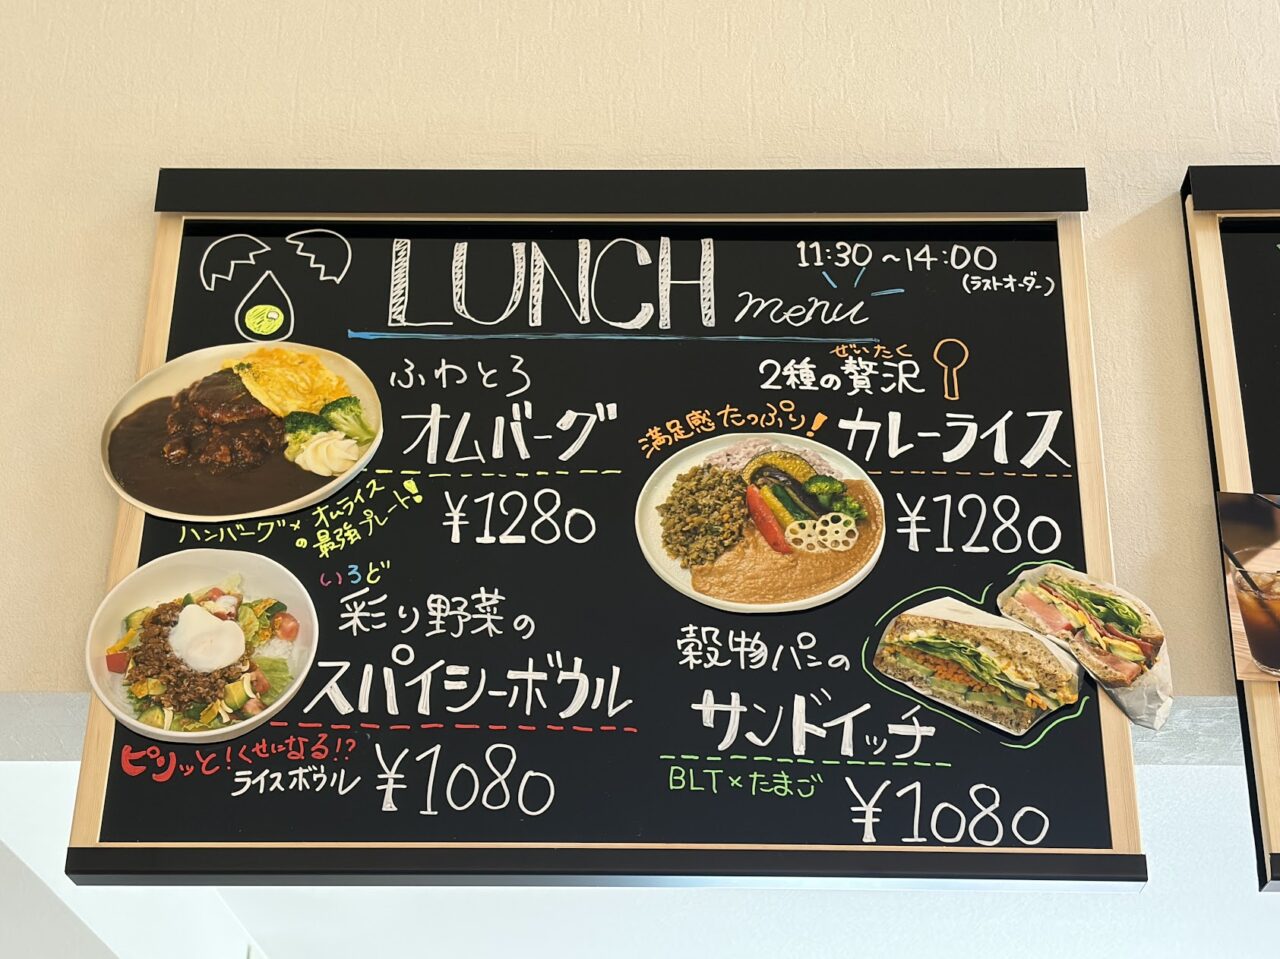 LUNCH menu
11:30~14:00
(ラストオーダー)
ふわとろ
オムバーグ
¥1280
ハンバーグ×オムライス
の最強プレート!
ぜいたく
2種の贅沢
満足感たっぷり!
カレーライス
¥1280
いろど
彩り野菜の
スパイシーボウル
ピリッと!くせになる!?
ライスボウル
¥1080
穀物パンの
サンドイッチ
BLT×たまご
¥1080